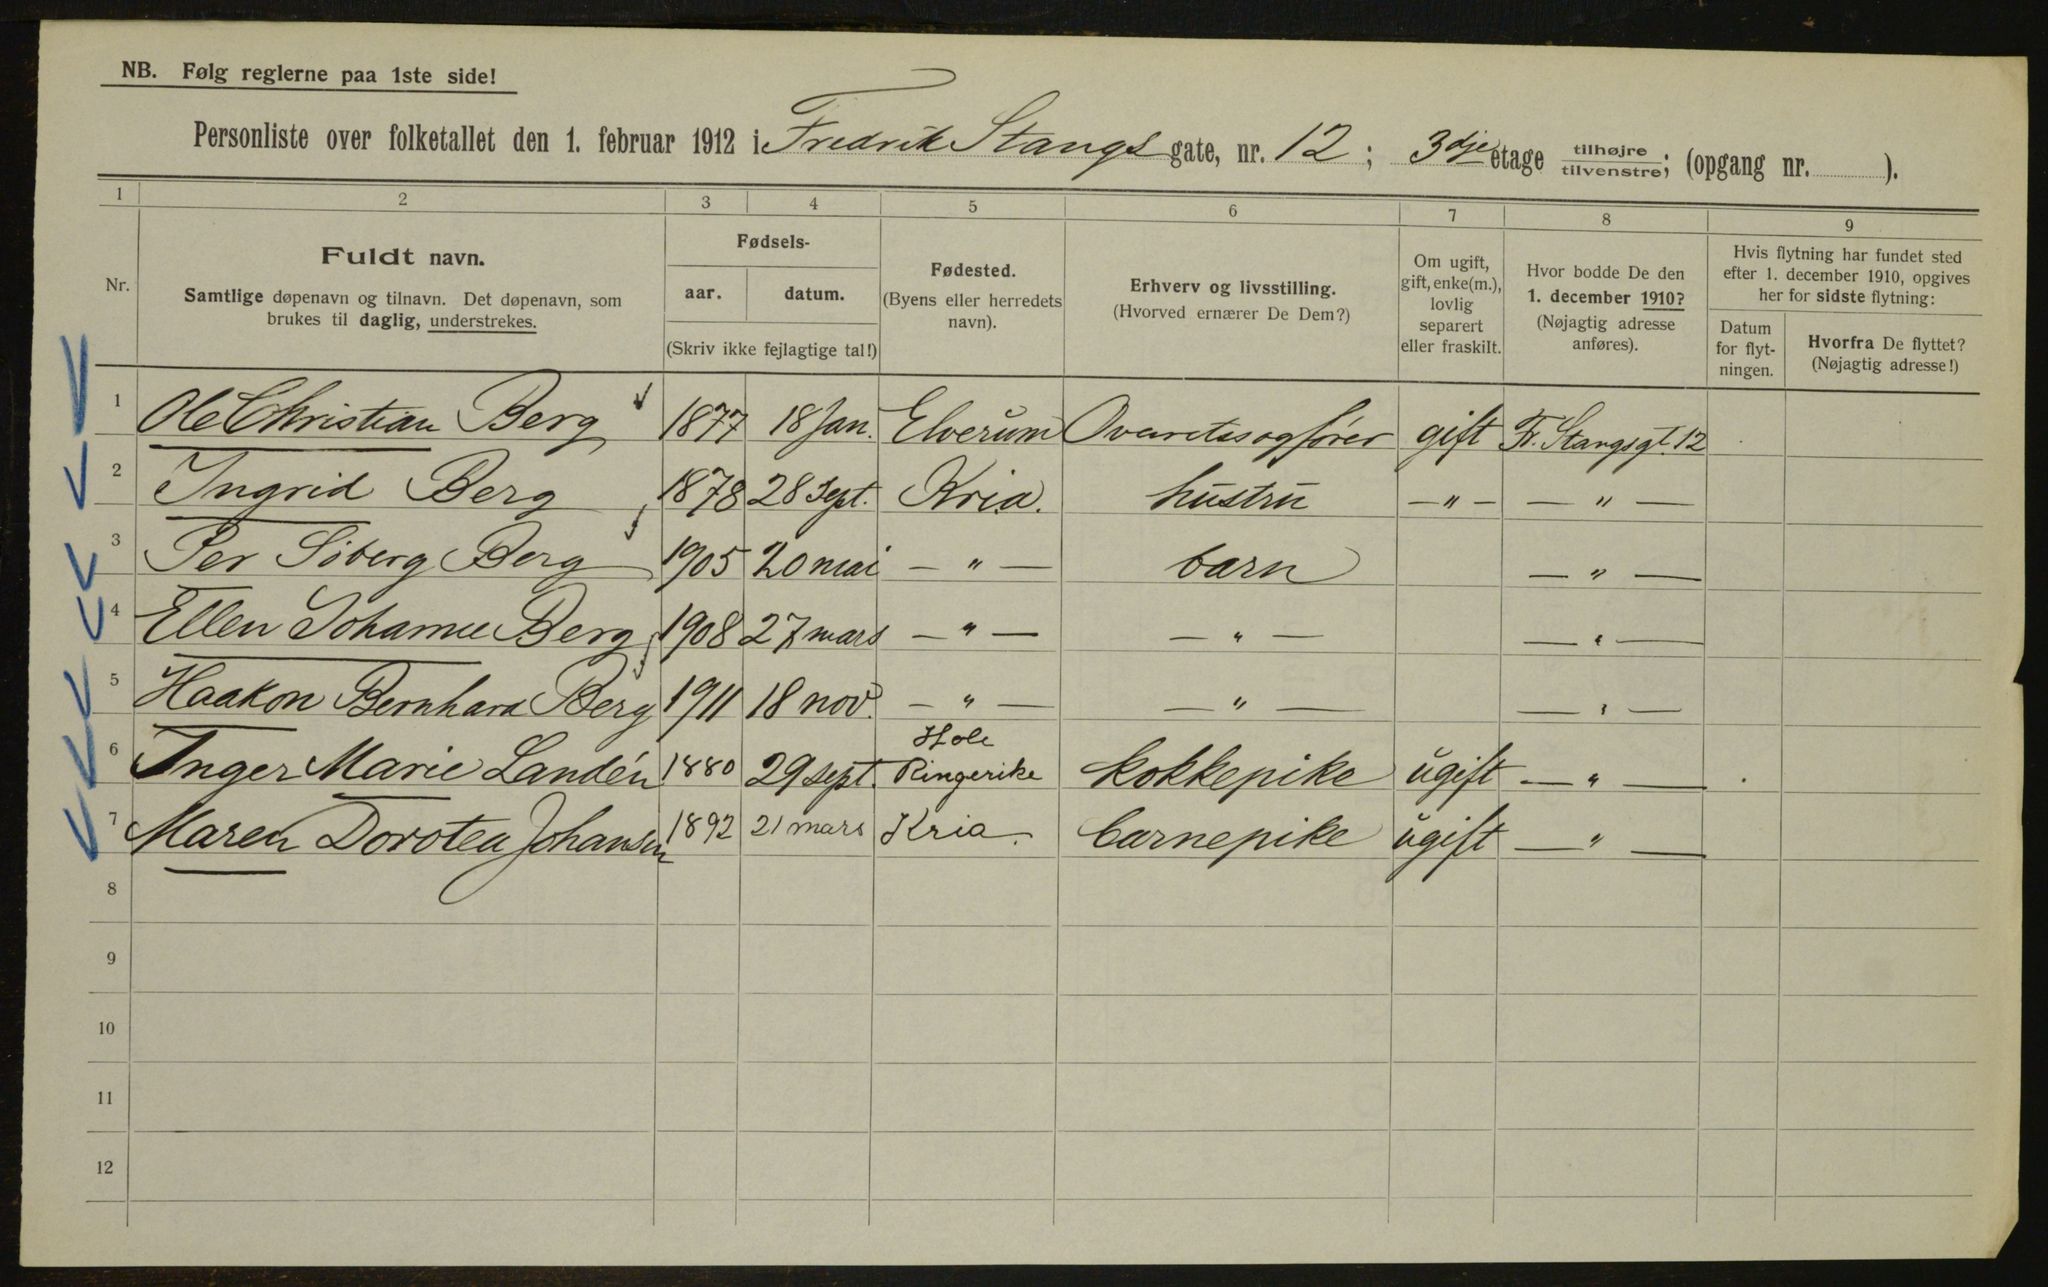 NB. Følg reglerne paa 1ste side!
Personliste over folketallet den 1. februar 1912 i Fredrik Stangs gate, nr. 12; 3dje etage tilhøjre tilvenstre; (opgang nr. ).
1 2 3 4 5 6 7 8 9
Nr.
Fuldt navn.
Samtlige døpenavn og tilnavn. Det døpenavn, som
brukes til daglig, understrekes.
Fødsels-
aar. datum.
(Skriv ikke fejlagtige tal!)
Fødested.
(Byens eller herredets
navn).
Erhverv og livsstilling.
(Hvorved ernærer De Dem?)
Om ugift,
gift, enke(m.),
lovlig
separert
eller fraskilt.
Hvor bodde De den
1. december 1910?
(Nøjagtig adresse
anføres).
Hvis flytning har fundet sted
efter 1. december 1910, opgives
her for sidste flytning:
Datum
for flyt-
ningen.
Hvorfra De flyttet?
(Nøjagtig adresse!)
1 Ole Christian Berg 1877 18 Jan. Elverum Overretssagfører gift Fr. Stangsgt. 12
2 Ingrid Berg 1878 28 sept. Kria. hustru — " — — " —
3 Per Siberg Berg 1905 20 mai — " — barn — " —
4 Ellen Johanne Berg 1908 27 mars — " — — " — — " —
5 Haakon Bernhard Berg 1911 18 nov. — " — — " — — " —
6 Inger Marie Landén 1880 29 sept. Hole Ringerike kokkepike ugift — " —
7 Maren Dorotea Johansen 1892 21 mars Kria. barnepike ugift — " —
8
9
10
11
12